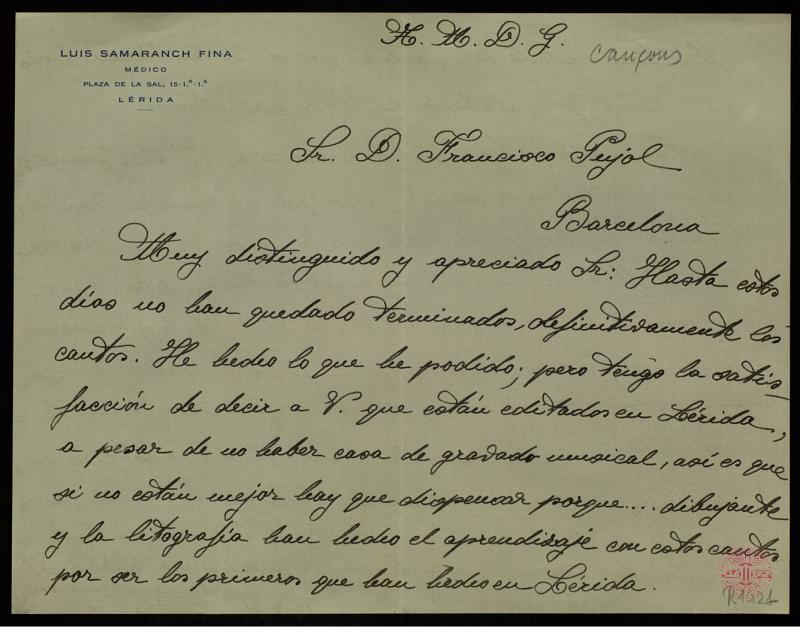 LUIS SAMARANCH FINA
MÉDICO
PLAZA DE LA SAL, 15-1.º-1.ª
LÉRIDA
A. M. D. G.
cançons
Sr. D. Francisco Pujol
Barcelona
Muy distinguido y apreciado Sr: Hasta estos
dias no han quedado terminados, definitivamente los
cantos. He hecho lo que he podido; pero tengo la satis-
facción de decir a V. que están editados en Lérida,
a pesar de no haber casa de gravado musical, así es que
si no están mejor hay que dispensar porque.... dibujante
y la litografia han hecho el aprendizaje con estos cantos
por ser los primeros que han hecho en Lérida.